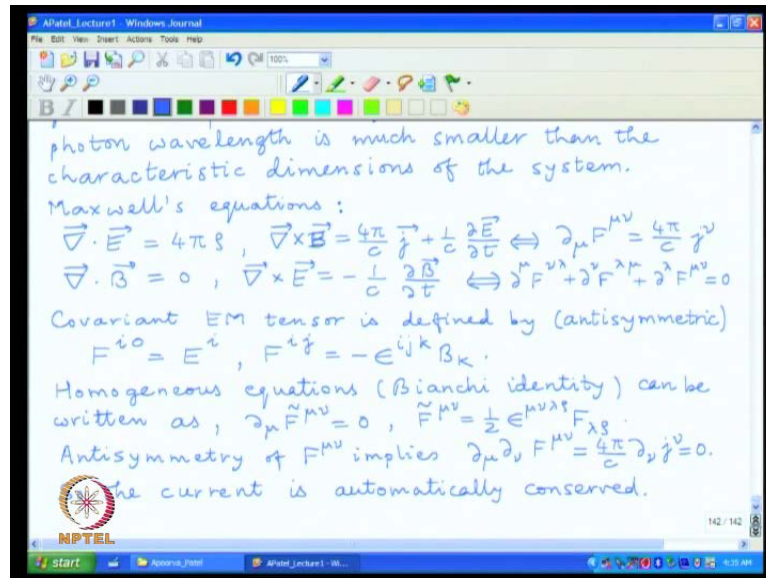 APatel_Lecture1 - Windows Journal
File Edit View Insert Actions Tools Help
100%
B I
photon wavelength is much smaller than the
characteristic dimensions of the system.
Maxwell's equations :
∇⃗·E⃗ = 4πρ , ∇⃗×B⃗ = 4π/c j⃗ + 1/c ∂E⃗/∂t ⇔ ∂_μ F^{μν} = 4π/c j^ν
∇⃗·B⃗ = 0 , ∇⃗×E⃗ = - 1/c ∂B⃗/∂t ⇔ ∂^μ F^{νλ} + ∂^ν F^{λμ} + ∂^λ F^{μν} = 0
Covariant EM tensor is defined by (antisymmetric)
F^{i0} = E^i , F^{ij} = - ϵ^{ijk} B_k .
Homogeneous equations (Bianchi identity) can be
written as, ∂_μ F̃^{μν} = 0 , F̃^{μν} = 1/2 ϵ^{μνλρ} F_{λρ} .
Antisymmetry of F^{μν} implies ∂_μ ∂_ν F^{μν} = 4π/c ∂_ν j^ν = 0.
the current is automatically conserved.
NPTEL
142 / 142
start
Apoorva_Patel
APatel_Lecture1 - Wi...
4:35 AM